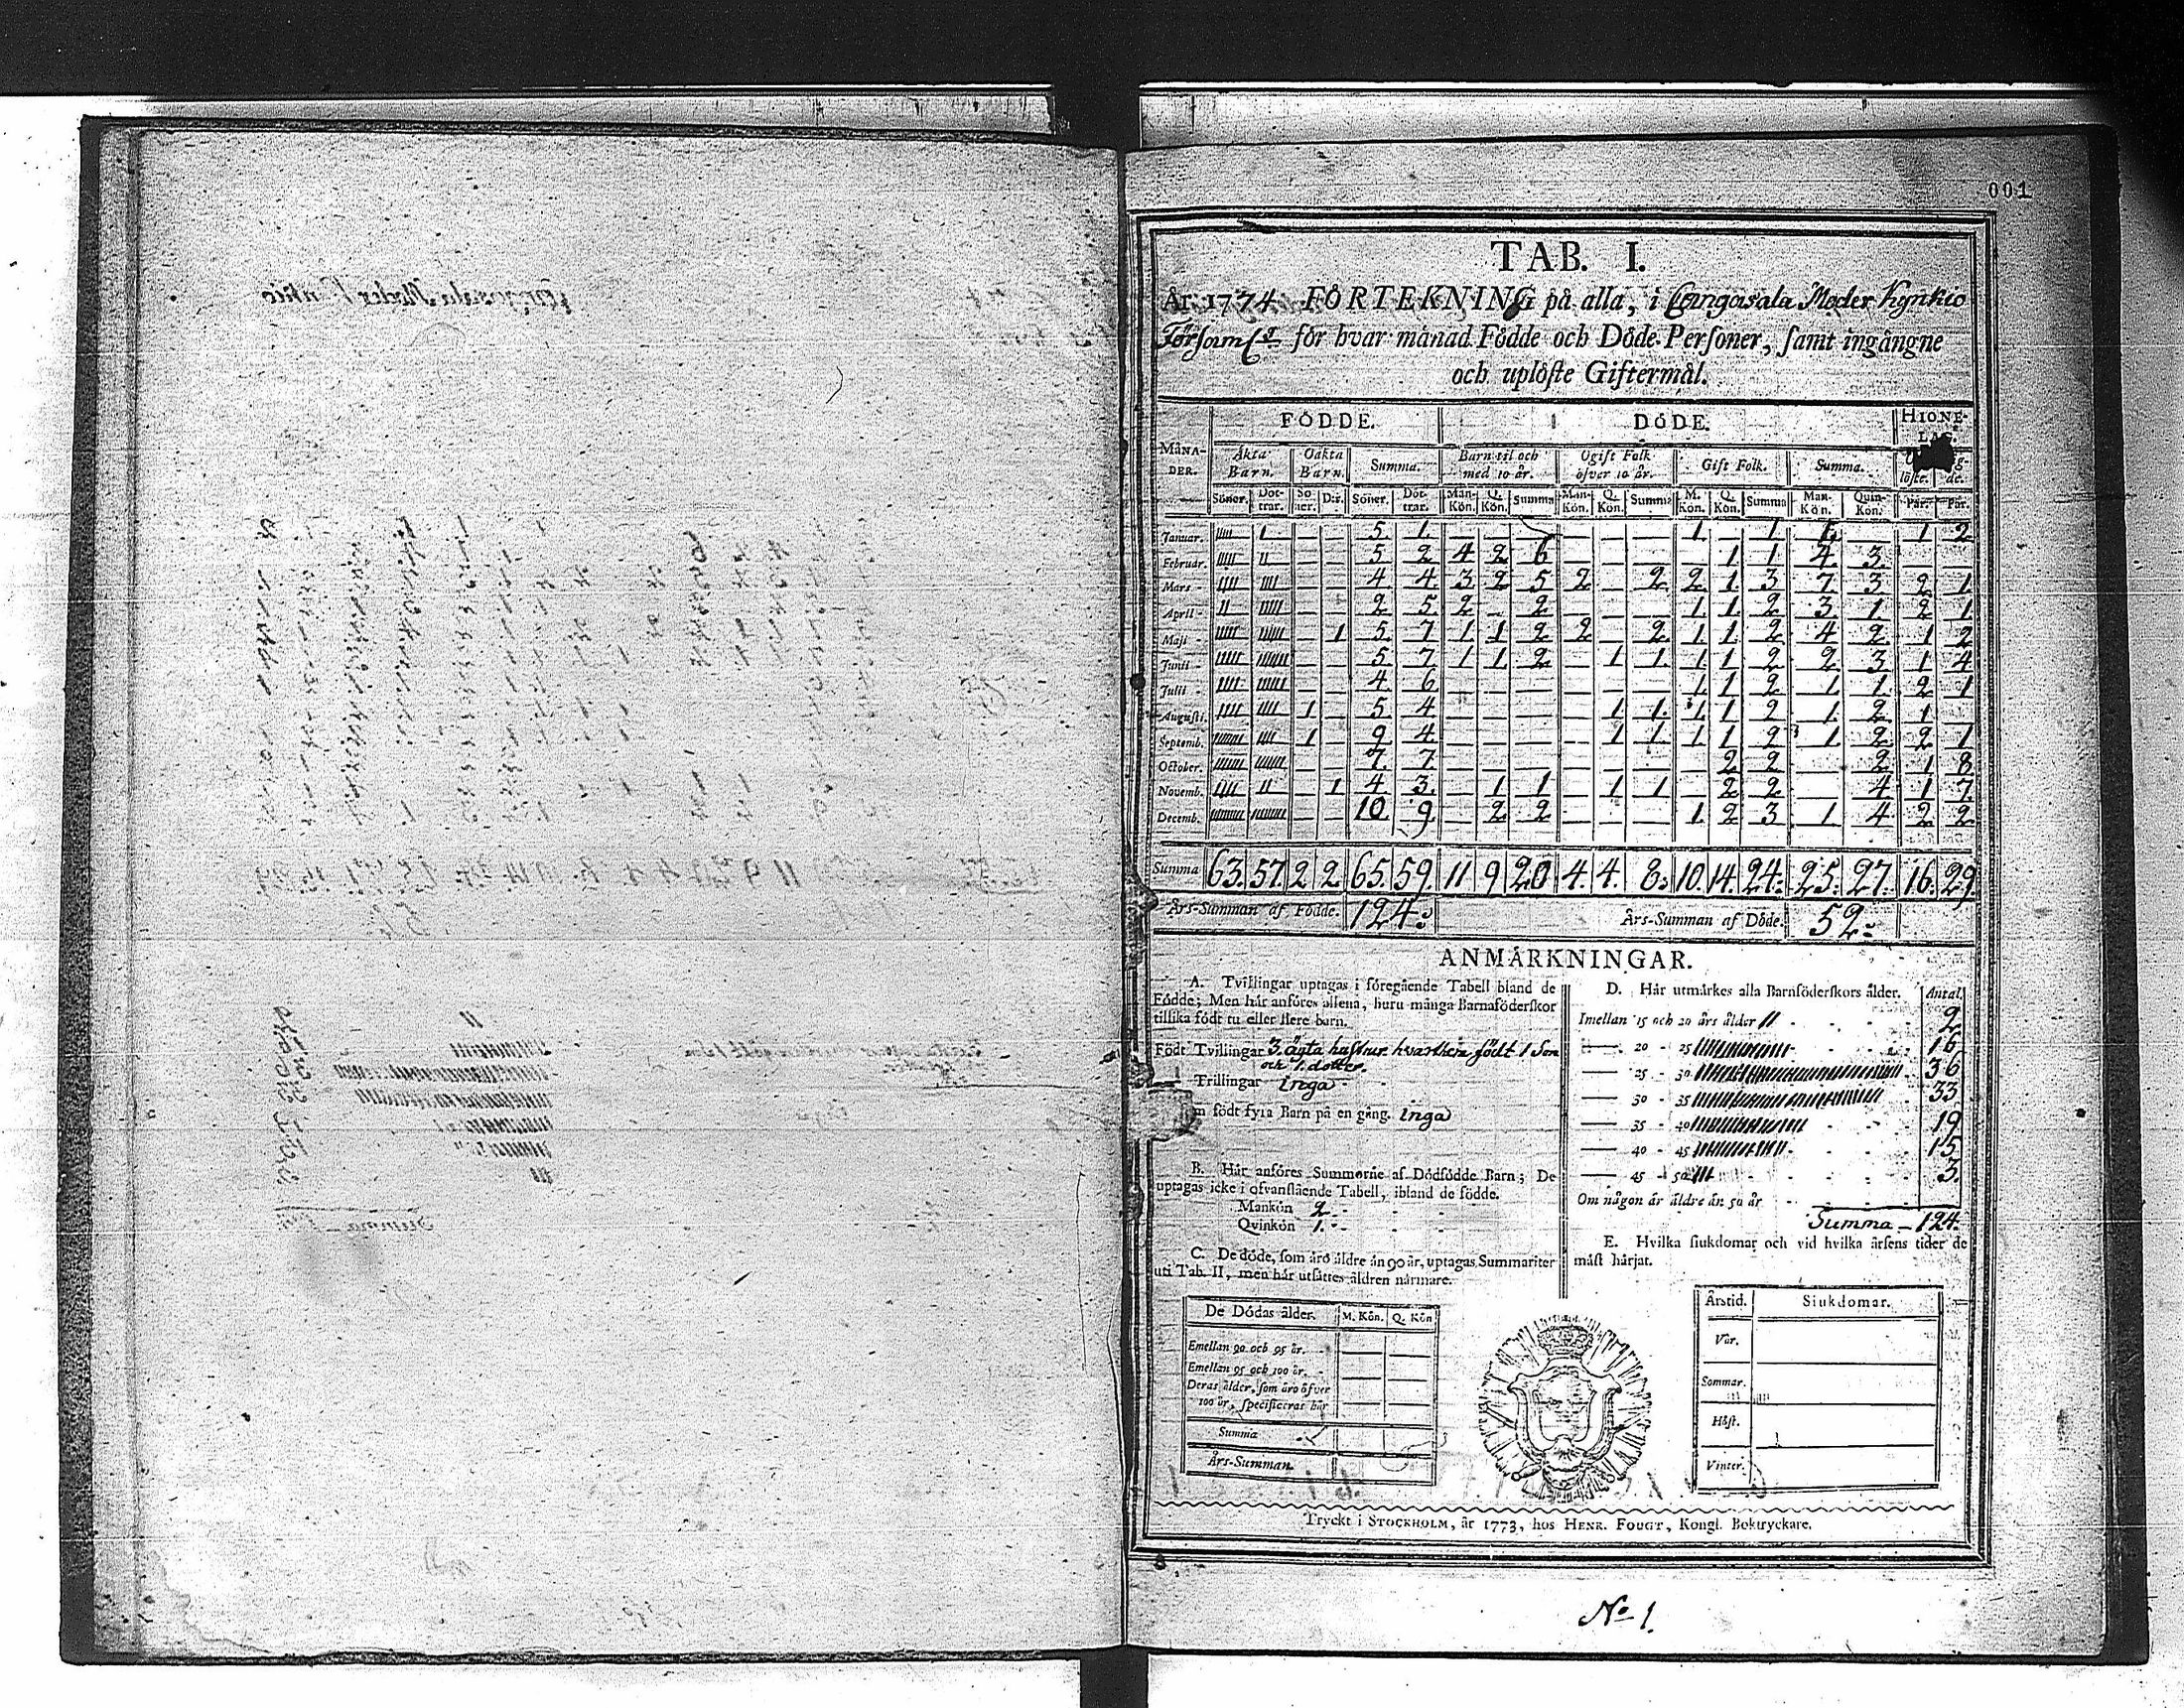 001
TAB. I.
År 1774 FÖRTEKNING på alla, i Cangasala Moder Kyrkio
Församl. för hvar månad Födde och Döde Personer, samt ingångne
och uplöste Giftermål.
FÖDDE. DÖDE. HIONE-LAG
MÅNA-DER. Äkta Barn. Oäkta Barn. Summa. Barn til och med 10 år. Ogift Folk öfver 10 år. Gift Folk. Summa.
Söner. Döt-trar. Sö-ner. D:r. Söner. Döt-trar. Man-Kön. Q. Kön. Summa Man-Kön. Q. Kön. Summa M. Kön. Q. Kön. Summa Man-Kön. Quin-Kön. Par. Par.
Januar. 1111 1 — — 5 1 — — — — — — 1 — 1 1 — 1 2
Februar. 11111 11 — — 5 2 4 2 6 — — — — 1 1 4 3 — —
Mars 1111 1111 — — 4 4 3 2 5 2 — 2 2 1 3 7 3 2 1
April 11 11111 — — 2 5 2 — 2 — — — 1 1 2 3 1 2 1
Maji 11111 111111 — 1 5 7 1 1 2 2 — 2 1 1 2 4 2 1 2
Junii 11111 1111111 — — 5 7 1 1 2 — 1 1 1 1 2 2 3 1 4
Julii 1111 111111 — — 4 6 — — — — — — 1 1 2 1 1 2 1
Augusti. 1111 1111 1 — 5 4 — — — — 1 1 1 1 2 1 2 1 —
Septemb. 11111111 1111 1 — 9 4 — — — — 1 1 1 1 2 1 2 2 1
October. 1111111 1111111 — — 7 7 — — — — — — — 2 2 — 2 1 8
Novemb. 1111 11 — 1 4 3 — 1 1 — 1 1 — 2 2 — 4 1 7
Decemb. 1111111111 111111111 — — 10 9 — 2 2 — — — 1 2 3 1 4 2 2
Summa 63. 57 2 2 65. 59. 11 9 20 4. 4. 8. 10. 14. 24. 25. 27. 16. 29.
Års-Summan af Födde. 124. Års-Summan af Döde. 52.
ANMÄRKNINGAR.
A. Tvillingar uptagas i föregående Tabell bland de
Födde; Men här anföres allena, huru många Barnaföderskor
tillika födt tu eller flere barn.
Födt Tvillingar 3. ägta hustrur hvarthera födt 1 Son
och 1. dotter.
Trillingar inga
födt fyra Barn på en gång. inga
B. Här anföres Summorne af Dödfödde Barn; De
uptagas icke i ofvanstående Tabell, ibland de födde.
Mankön 2.
Qvinkön 1.
C. De döde, som äro äldre än 90 år, uptagas Summariter
uti Tab. II, men här utsättes åldren närmare.
De Dödas ålder. M. Kön. Q. Kön
Emellan 90 och 95 år. — —
Emellan 95 och 100 år. — —
Deras ålder, som äro öfver
100 år, specificeras här — —
Summa
Års-Summan.
D. Här utmärkes alla Barnföderskors ålder. Antal.
Imellan 15 och 20 års ålder 11 2
— 20 - 25 16
— 25 - 30 36
— 30 - 35 33
— 35 - 40 19
— 40 - 45 15
— 45 - 50 111 3.
Om någon är äldre än 50 år
Summa — 124.
E. Hvilka siukdomar och vid hvilka årsens tider de
mäst härjat.
Årstid. Siukdomar.
Vår.
Sommar.
Höst.
Vinter.
Tryckt i STOCKHOLM, år 1773, hos HENR. FOUGT, Kongl. Boktryckare.
No 1.